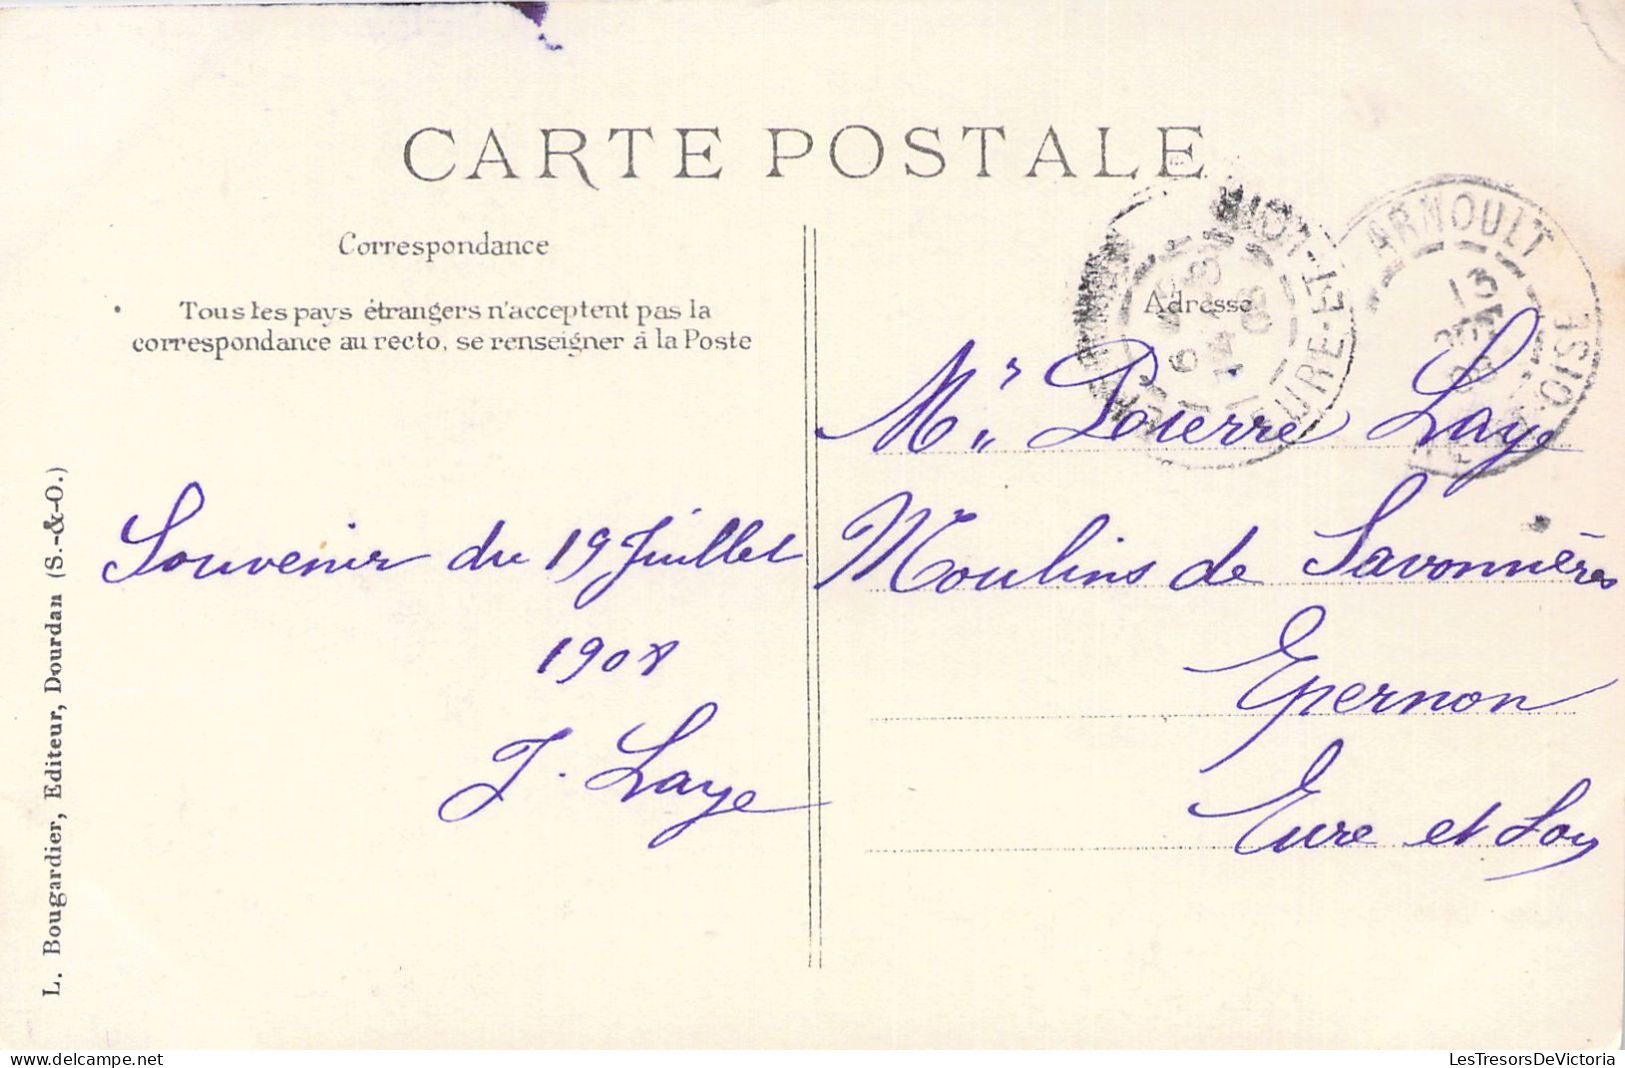 CARTE POSTALE
Correspondance
Tous les pays étrangers n'acceptent pas la
correspondance au recto, se renseigner à la Poste
Souvenir du 19 Juillet
1908
J. Laye
L. Bougardier, Editeur, Dourdan (S.-&-O.)
Adresse
Mr. Pierre Laye
Moulins de Savonnières
Epernon
Eure et Loir
EURE-ET-LOIR
ARNOULT
13
OISE
delcampe.net
LesTresorsDeVictoria